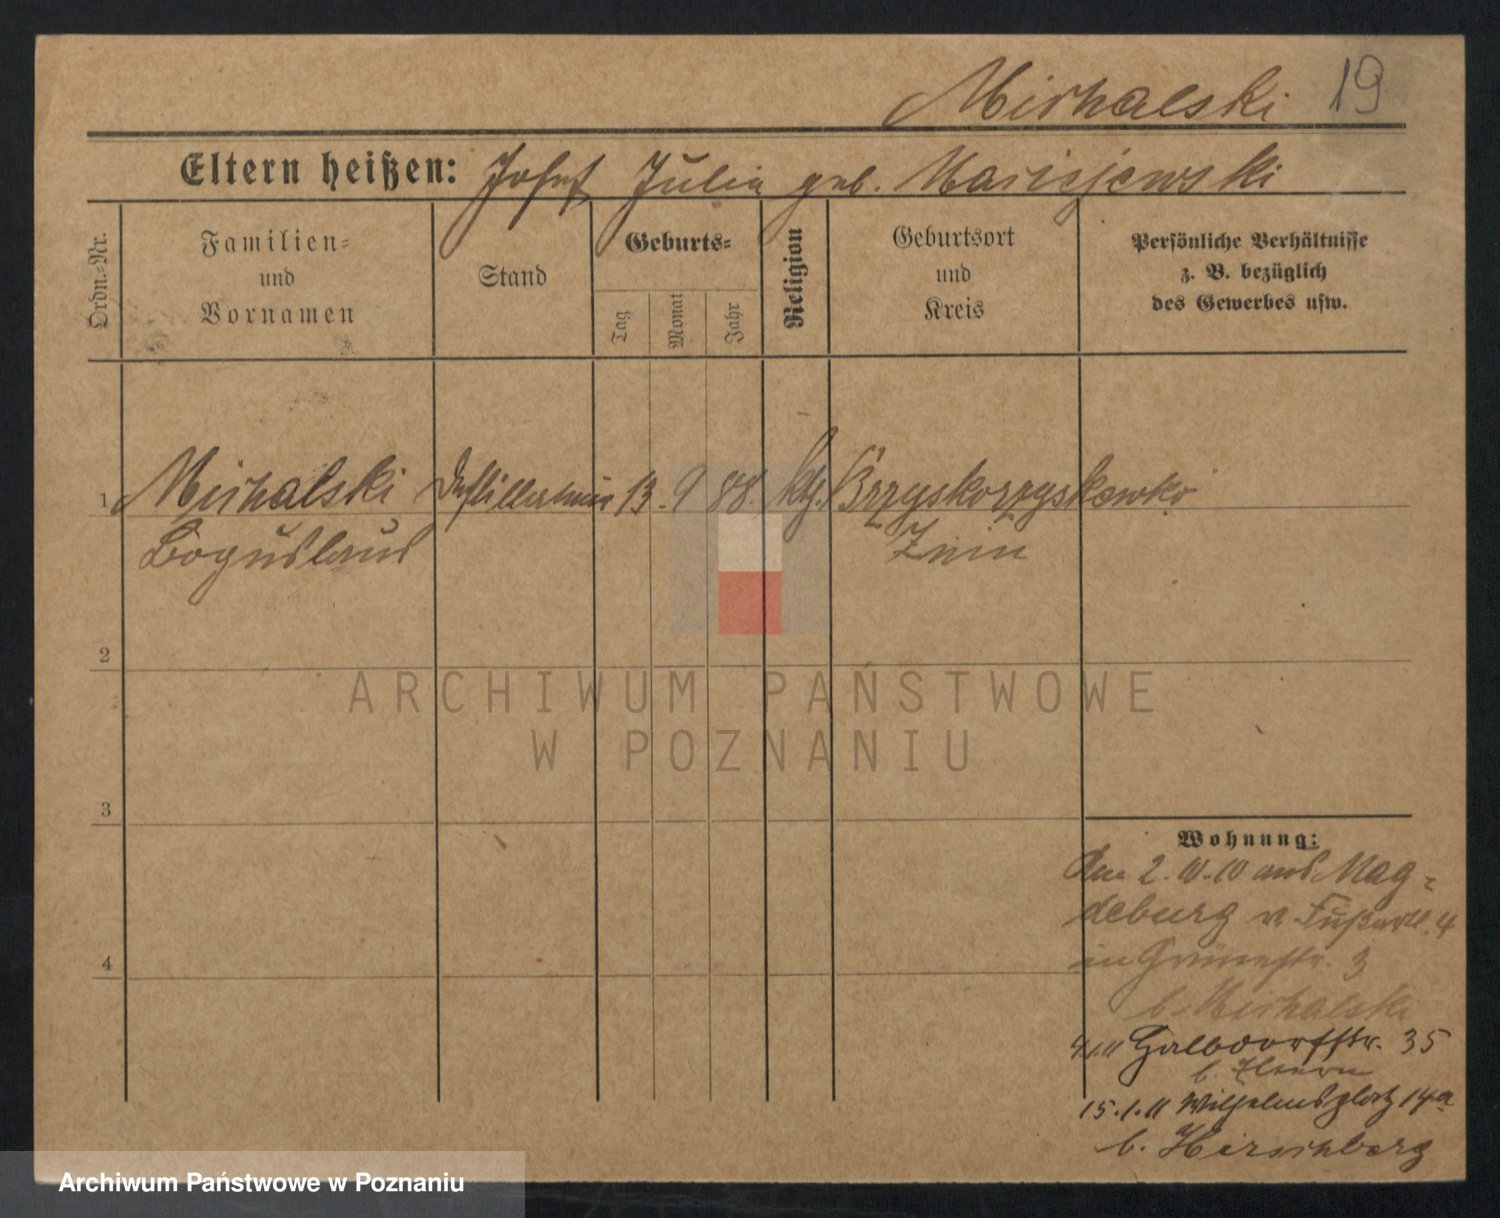 Michalski 19
Eltern heißen: Josef, Julia geb. Maciejewski
Ordn.-Nr.
Familien-
und
Vornamen
Stand
Geburts-
Tag
Monat
Jahr
Religion
Geburtsort
und
Kreis
Persönliche Verhältnisse
z. B. bezüglich
des Gewerbes usw.
1 Michalski Destillateur 13. 9 88. ktf. Brzyskorzyskewko
Boguslaus Znin
2
ARCHIWUM PAŃSTWOWE
W POZNANIU
3
Wohnung:
2. 10. 10 aus Mag-
deburg v. Fußart. 4
in Grünestr. 3
b. Michalski
Halbdorfstr. 35
b. Eltern
15. 1. 11 Wilhelmsplatz 14a
b. Hirschberg
4
Archiwum Państwowe w Poznaniu